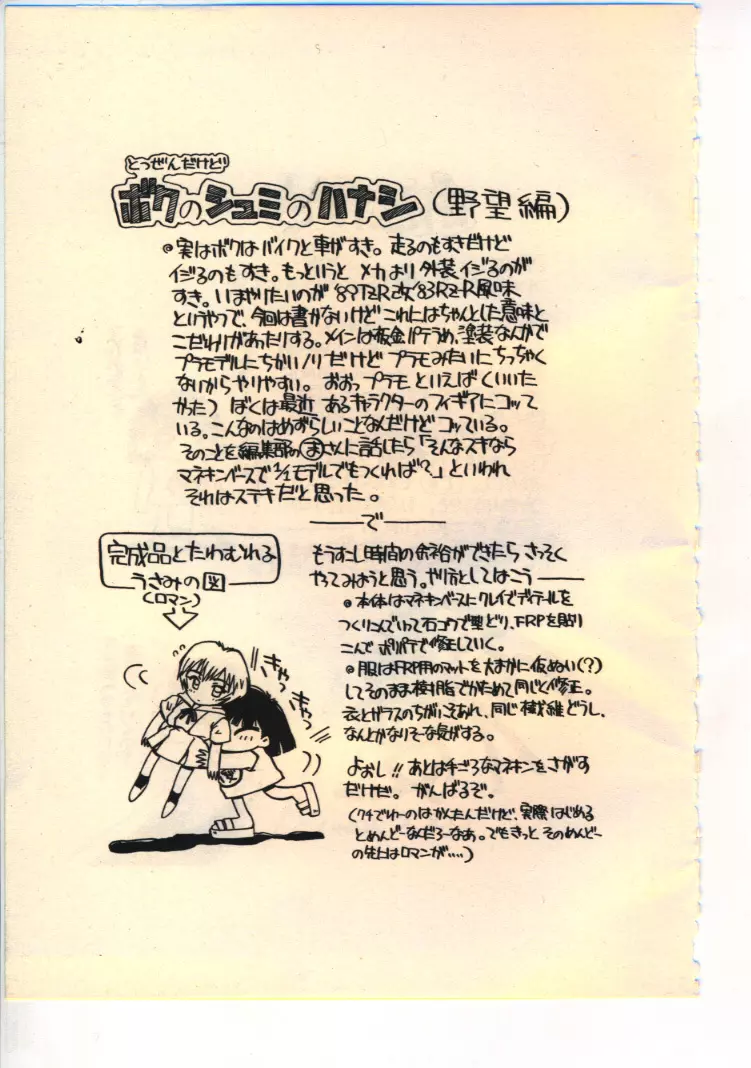 とつぜんだけど
ボクのシュミのハナシ(野望編)
◎実はボクはバイクと車がすき。走るのもすきだけど
イジるのもすき。もっというと メカより外装イジるのが
すき。いまやりたいのが '89TZR改'83RZ-R風味
というやつで、今回は書かないけど これにはちゃんとした意味と
こだわりがあったりする。メインは板金パテうめ、塗装なんかで
プラモデルにちかいノリだけど プラモみたいにちっちゃく
ないからやりやすい。おおっプラモといえば(いいた
かった) ぼくは最近 あるキャラクターのフィギアにコッて
いる。こんなのはめずらしいことなんだけどコッている。
そのことを編集部のまさんに話したら「そんなスキなら
マネキンベースで1/1モデルでもつくれば?」といわれ
それはステキだと思った。
で
完成品とたわむれる
うさみの図
(ロマン)
もうすこし時間の余裕ができたら さっそく
やってみようと思う。やり方としてはこう
◎本体はマネキンベースにクレイでディテールを
つくりこんでいって石コウで型どり、FRPを貼り
こんで ポリパテで修正していく。
◎服はFRP用のマットを大まかに仮ぬい(?)
してそのまま樹脂でかためて同じく修正。
衣とガラスのちがいこそあれ、同じ繊維どうし、
なんとかなりそーな気がする。
きゃっ
きゃっ
よおし!! あとは手ごろなマネキンをさがす
だけだ。がんばるぞ。
(クチでゆーのはかんたんだけど、実際はじめる
とめんどーなんだろーなあ。でもきっと そのめんどー
の先にはロマンが.....)